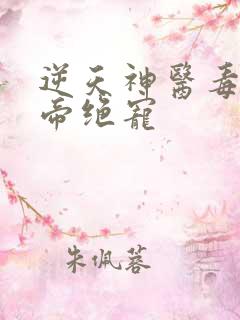 逆天神醫毒
帝绝寵
朱佩蓉